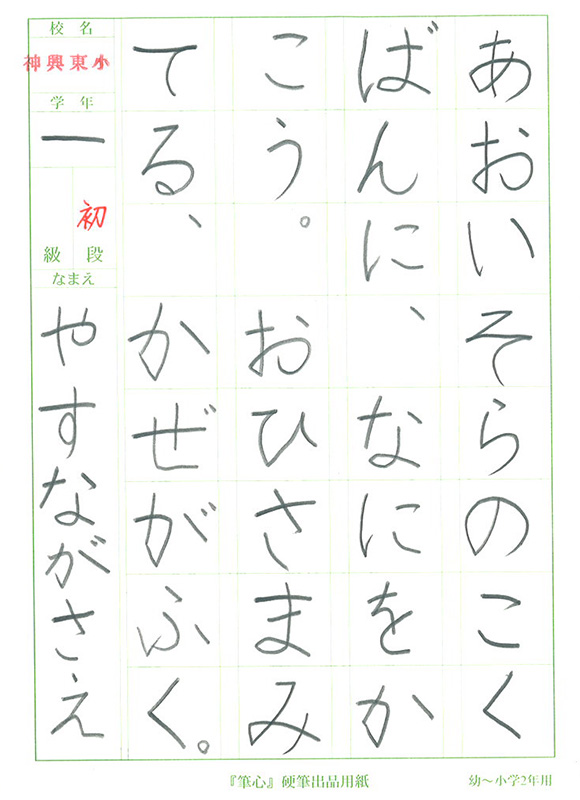 あおいそらのこく
ばんに、なにをか
こう。おひさまみ
てる、かぜがふく。
校名
神興東小
学年
一
初
級段
なまえ
やすながさえ
『筆心』硬筆出品用紙
幼〜小学2年用